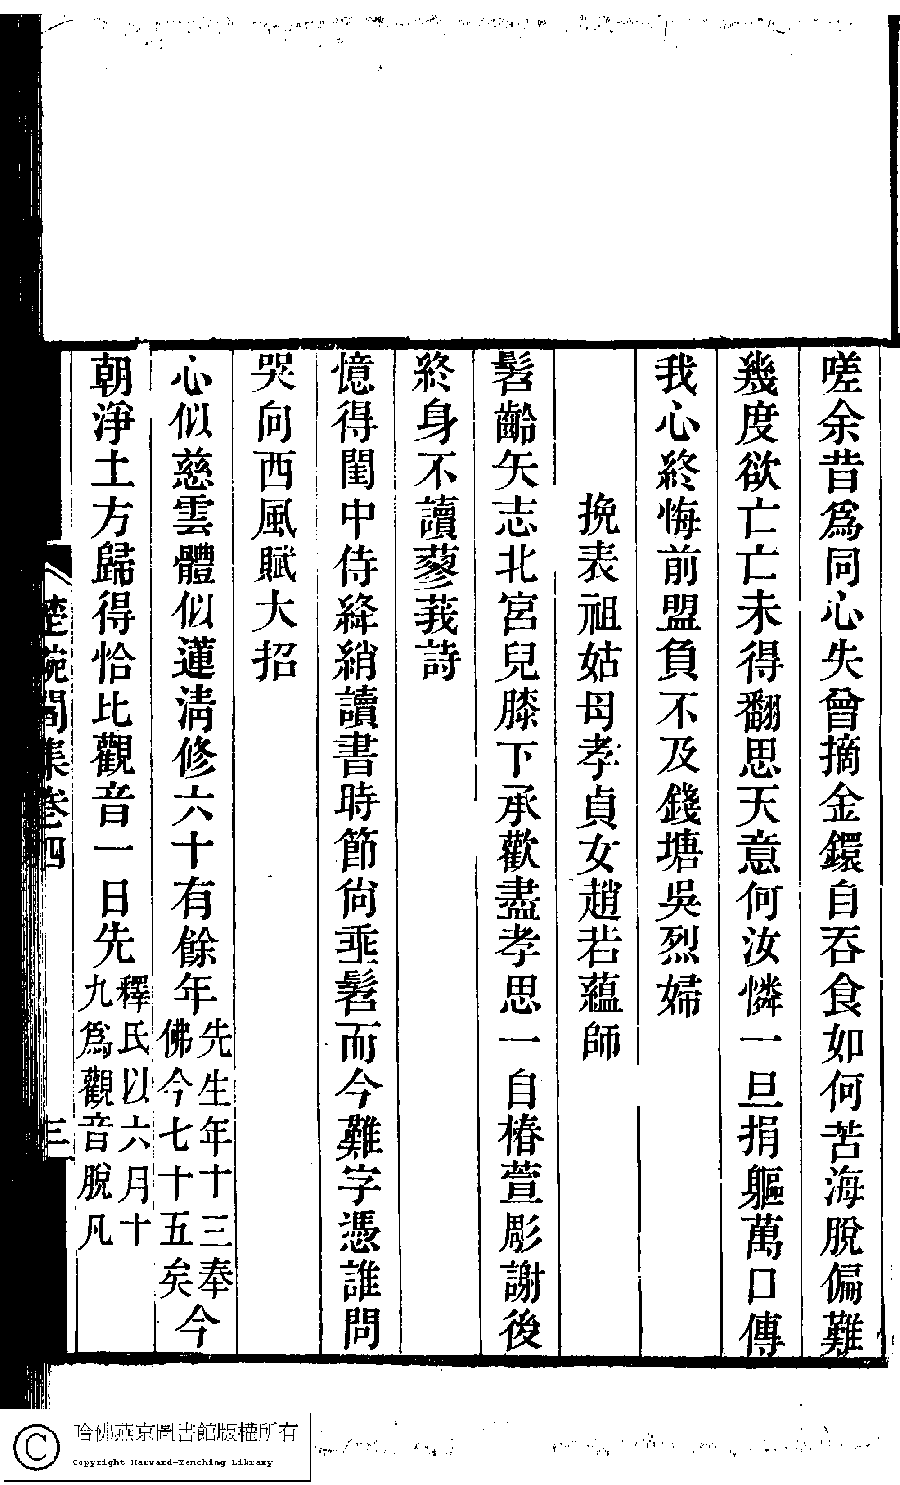 嗟余昔爲同心失曾摘金鐶自吞食如何苦海脫偏難
幾度欲亡亡未得翻思天意何汝憐一旦捐軀萬口傳
我心終悔前盟負不及錢塘吳烈婦
挽表祖姑母孝貞女趙若蘊師
髫齡矢志北宮兒膝下承歡盡孝思一自椿萱彫謝後
終身不讀蓼莪詩
憶得閨中侍絳綃讀書時節尙垂髫而今難字憑誰問
哭向西風賦大招
心似慈雲體似蓮淸修六十有餘年先生年十三奉佛今七十五矣今
朝淨土方歸得恰比觀音一日先釋氏以六月十九爲觀音脫凡
楚畹閣集卷四
三
哈佛燕京圖書館版權所有
Copyright Harvard-Yenching Library